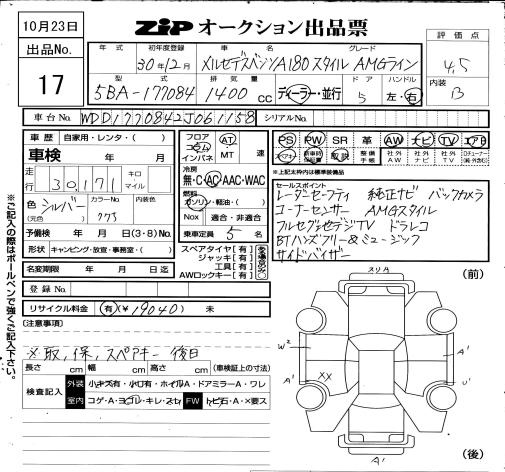 10月23日
ZiP オークション出品票
出品No.
17
年式 初年度登録 車名 グレード
30年12月 メルセデスベンツA180スタイル AMGライン
型式 排気量 ドア ハンドル
5BA-177084 1400cc ディーラー・並行 5 左・右
評価点
4.5
内装
B
車台No. WDD1770842J061158 シリアルNo.
車歴 自家用・レンタ・( )
車検 年 月
走行 30171 キロ マイル
色 シルバー (元色) カラーNo. 775
予備検 年 月 日(3・8)No.
形状 キャンピング・放宣・事務室・( )
名変期限 年 月 日迄
登録No.
リサイクル料金 有(¥19040) 未
フロア コラム インパネ AT MT 速
冷房
無・C・AC・AAC・WAC
燃料
ガソリン・軽油・( )
Nox 適合・非適合
乗車定員 5 名
スペアタイヤ[有]
ジャッキ[有]
工具[有]
AWロックキー[有]
PS PW SR 革 AW ナビ TV エアB
スペアキー 新車時保証書 取説 整備手帳 社外AW 社外ナビ 社外TV
※上記太枠内は標準装備品
セールスポイント
レーダーセーフティ 純正ナビ バックカメラ
コーナーセンサー AMGスタイル
フルセグ地デジTV ドラレコ
BTハンズフリー&ミュージック
サイドバイザー
(注意事項)
※取,保,スペアキー後日
長さ cm 幅 cm 高さ cm (車検証上の寸法)
検査記入 外装 小キズ有・小凹有・ホイルA・ドアミラーA・ワレ
室内 コゲ・A・ヨゴレ・キレ・スレ FW トビ石・A・X要ス
※ご記入の際はボールペンで強くご記入下さい。
(前)
スリA
W2
A'
XX
U'
A'
(後)